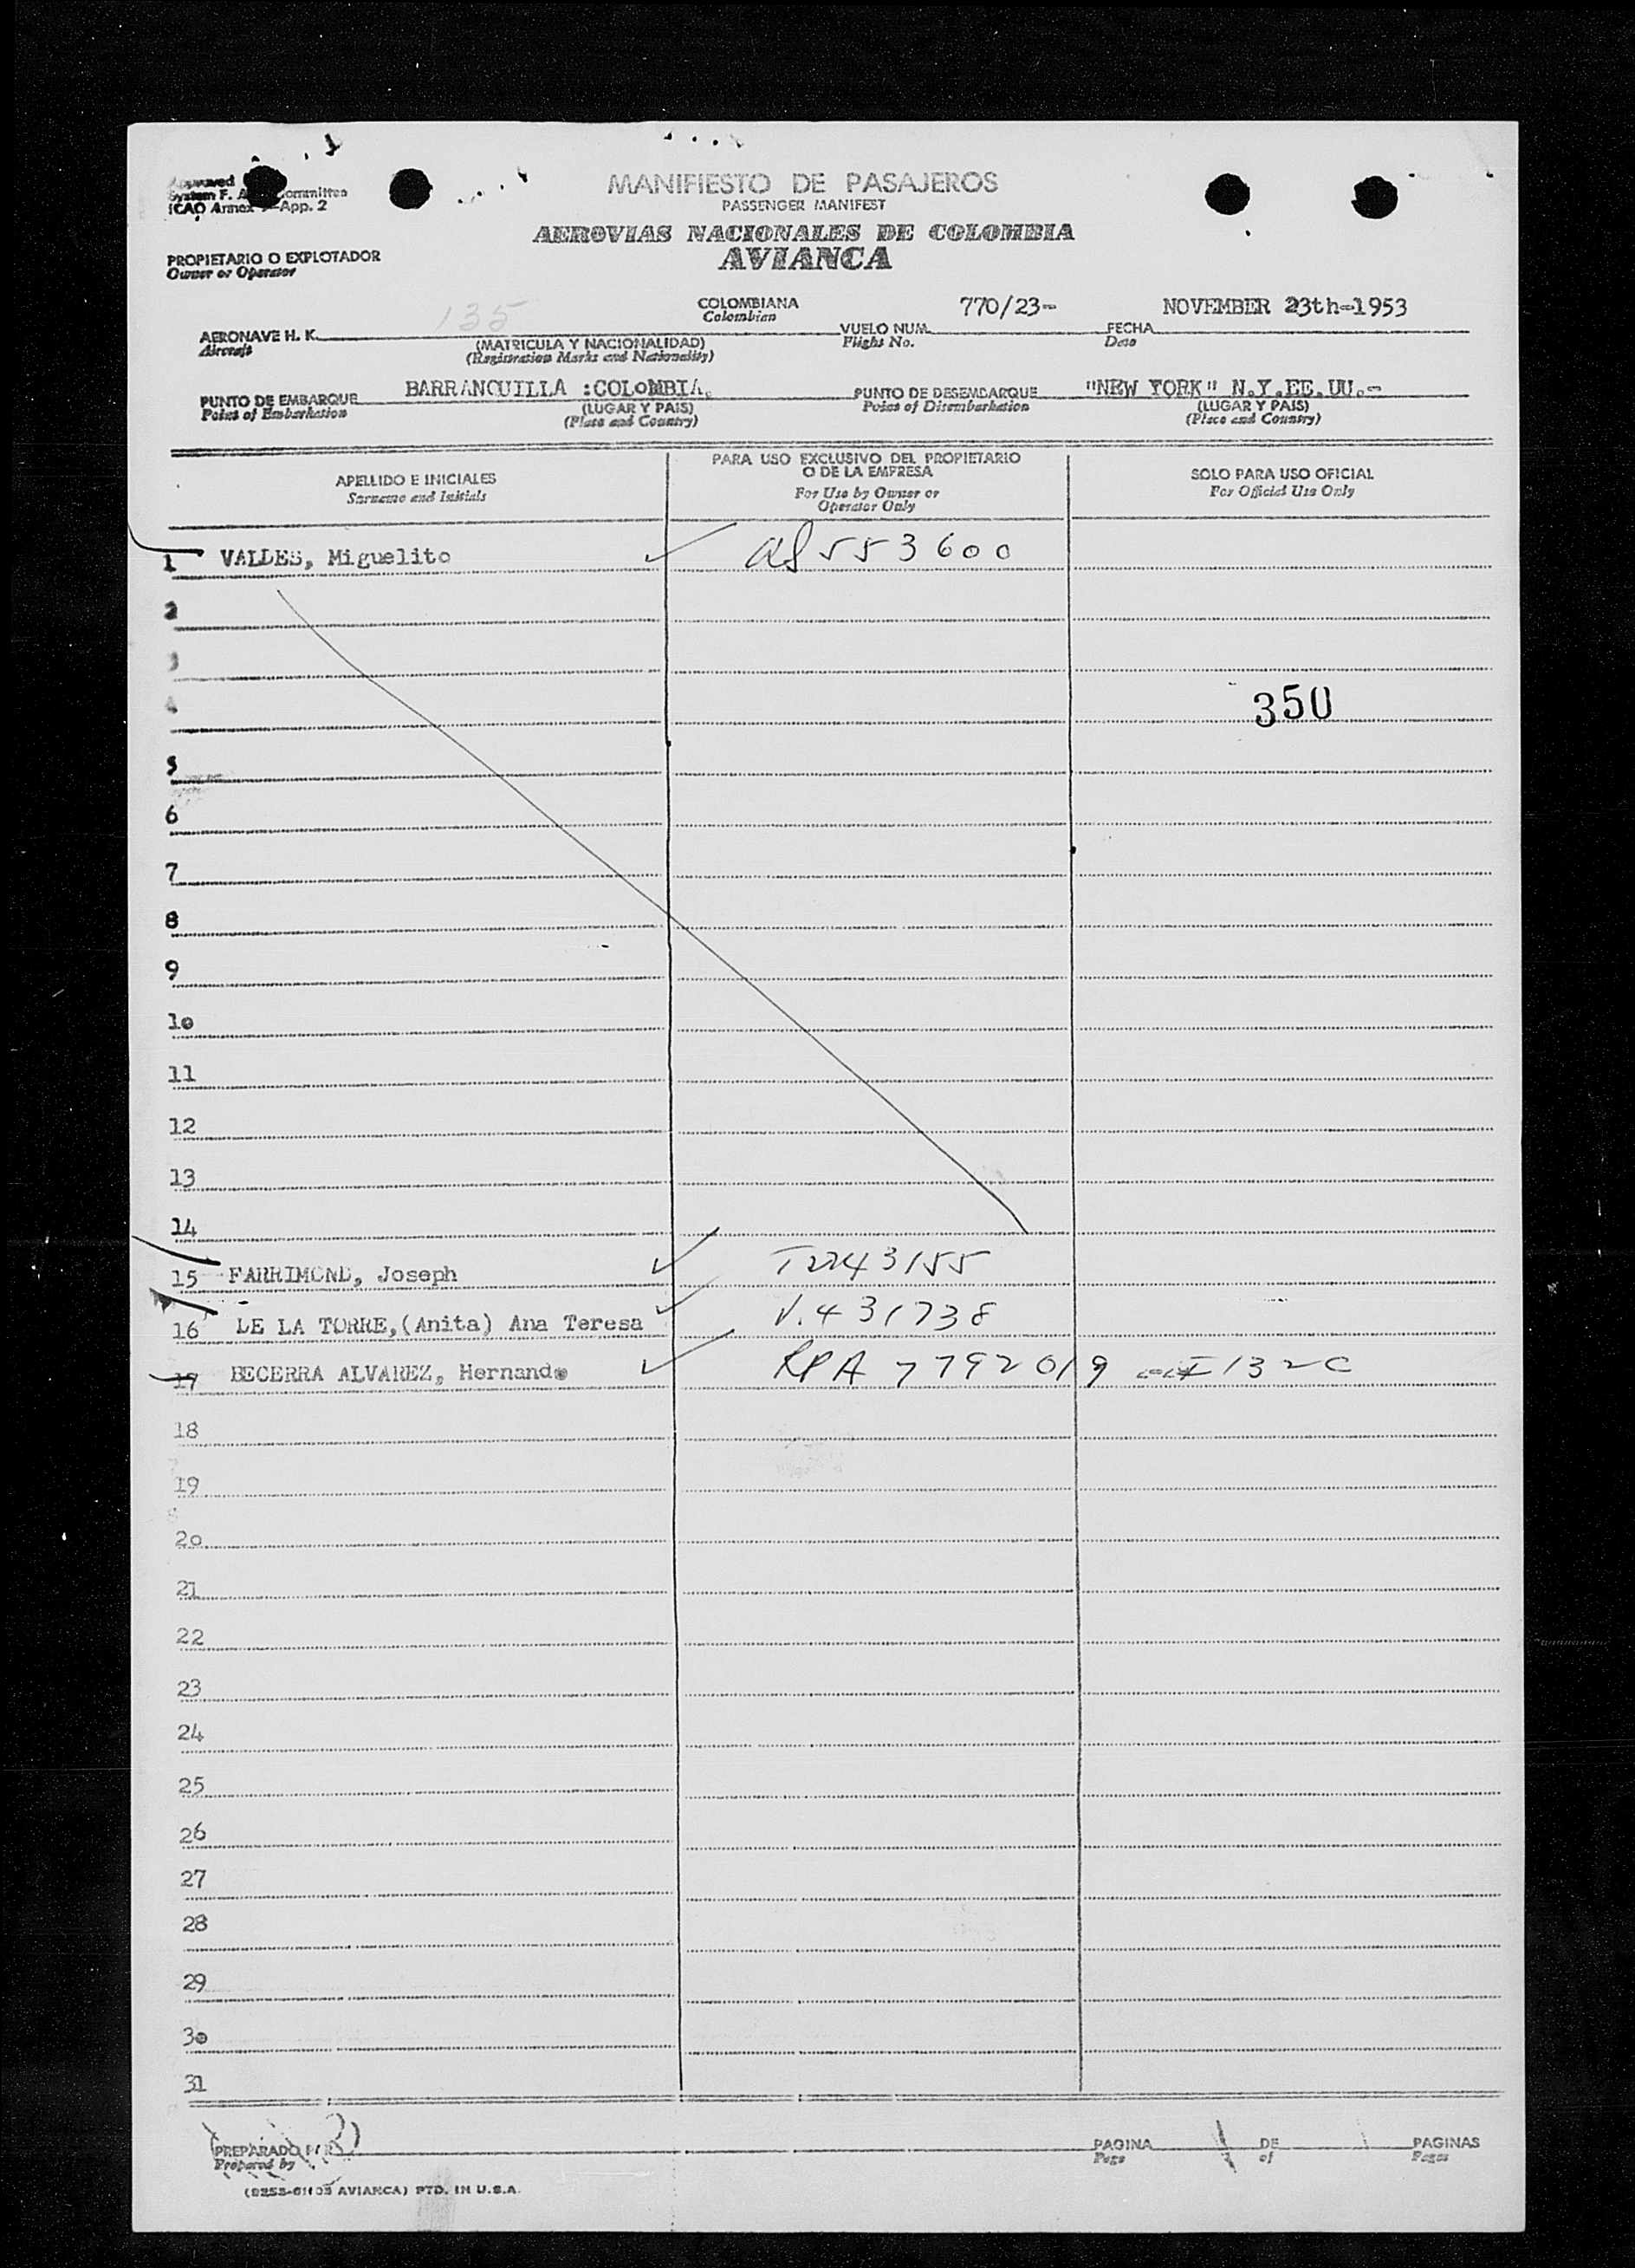 Approved
System F. A Committee
ICAO Annex App. 2
MANIFIESTO DE PASAJEROS
PASSENGER MANIFEST
AEROVIAS NACIONALES DE COLOMBIA
AVIANCA
PROPIETARIO O EXPLOTADOR
Owner or Operator
135
COLOMBIANA
Colombian
770/23-
NOVEMBER 23th-1953
AERONAVE H. K.
Aircraft
(MATRICULA Y NACIONALIDAD)
(Registration Marks and Nationality)
VUELO NUM.
Flight No.
FECHA
Date
PUNTO DE EMBARQUE
Point of Embarkation
BARRANQUILLA :COLOMBIA.
(LUGAR Y PAIS)
(Place and Country)
PUNTO DE DESEMBARQUE
Point of Disembarkation
"NEW YORK" N.Y.EE.UU.-
(LUGAR Y PAIS)
(Place and Country)
APELLIDO E INICIALES
Surname and Initials
PARA USO EXCLUSIVO DEL PROPIETARIO
O DE LA EMPRESA
For Use by Owner or
Operator Only
SOLO PARA USO OFICIAL
For Official Use Only
1 VALDES, Miguelito 553600
2
3
4 350
5
6
7
8
9
10
11
12
13
14
15 FARRIMOND, Joseph
16 DE LA TORRE,(Anita) Ana Teresa V.431738
17 BECERRA ALVAREZ, Hernando RPA 7792019 132C
18
19
20
21
22
23
24
25
26
27
28
29
30
31
PREPARADO
Prepared by
PAGINA 1 DE 1 PAGINAS
Page of Pages
AVIANCA) PTD. IN U.S.A.